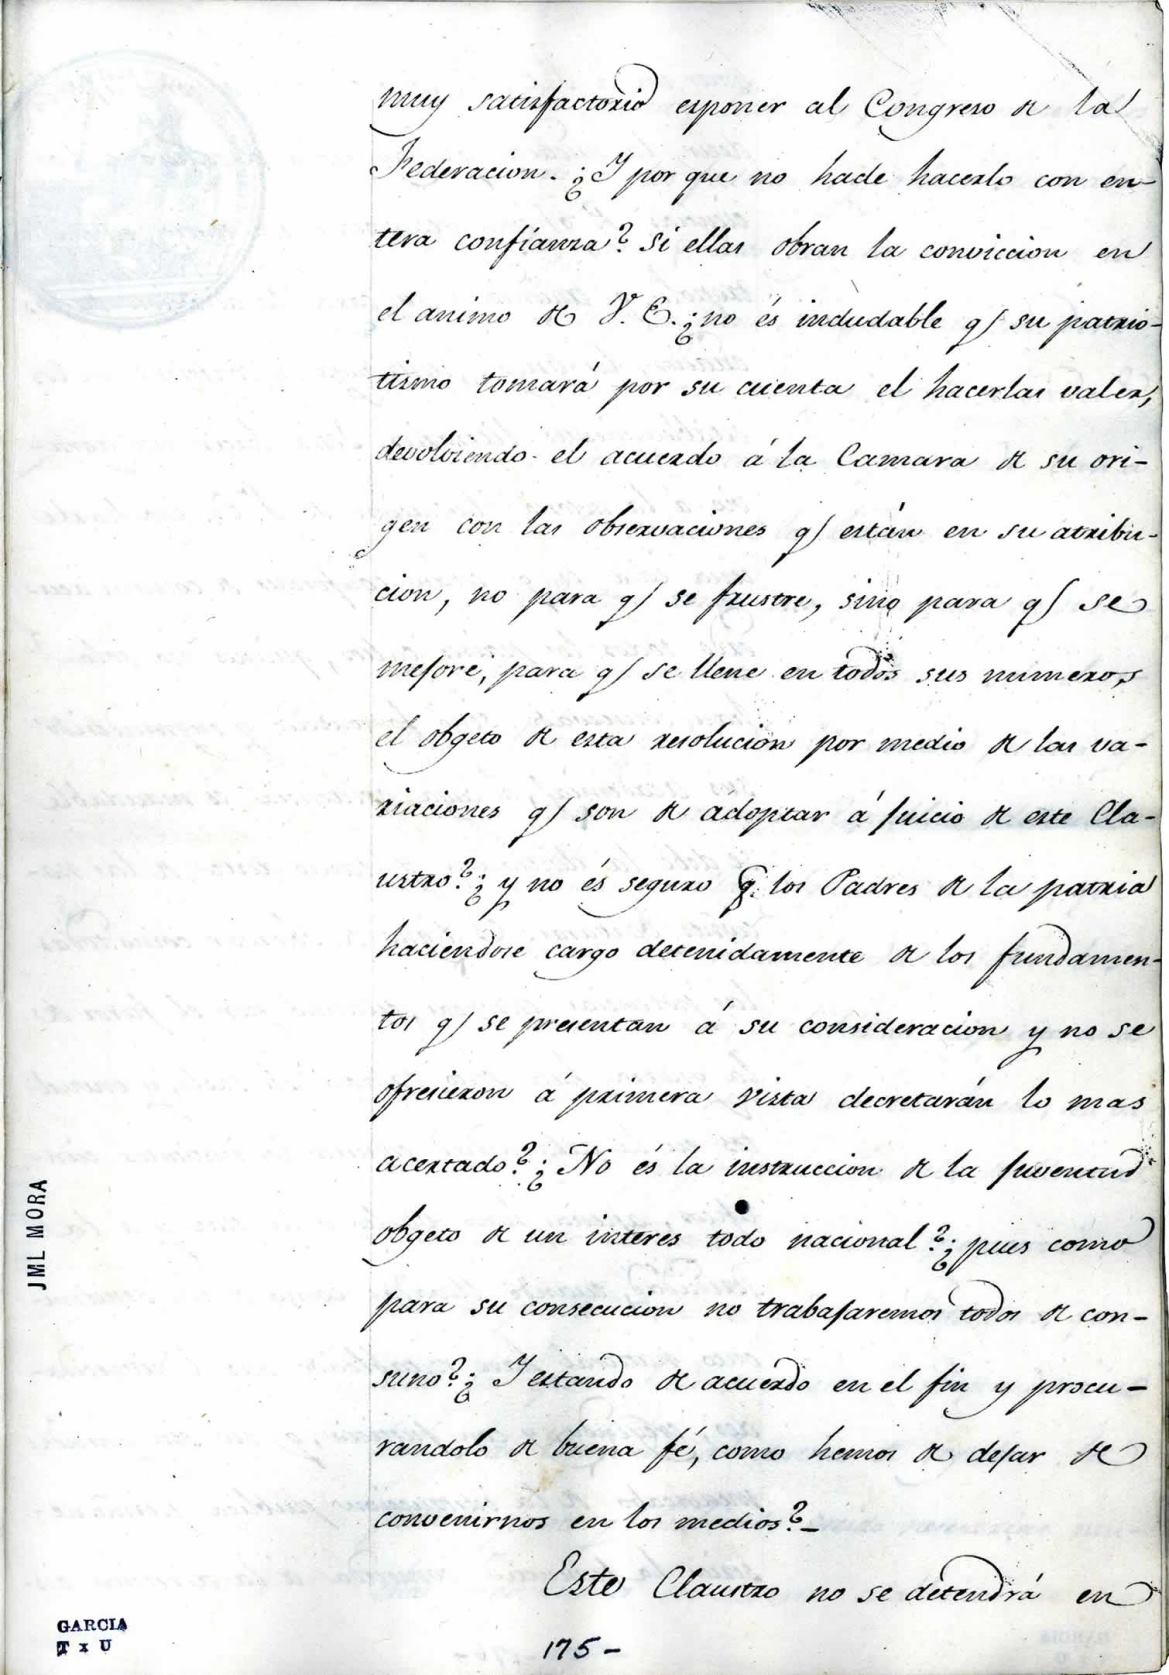 muy satisfactorio esponer al Congreso de la
Federacion. ¿Y por que no hade hacerlo con en-
tera confianza? Si ellas obran la conviccion en
el animo de V. E. ¿no és indudable q/ su patrio-
tismo tomará por su cuenta el hacerlas valer,
devolviendo el acuerdo á la Camara de su ori-
gen con las observaciones q/ están en su atribu-
cion, no para q/ se frustre, sino para q/ se
mejore, para q/ se llene en todos sus numeros
el obgeto de esta resolucion por medio de las va-
riaciones q/ son de adoptar á juicio de este Cla-
ustro? ¿y no és seguro q. los Padres de la patria
haciendose cargo detenidamente de los fundamen-
tos q/ se presentan á su consideracion y no se
ofrecieron á primera vista decretarán lo mas
acertado? ¿No és la instruccion de la juventud
obgeto de un interes todo nacional? ¿pues como
para su consecucion no trabajaremos todos de con-
suno? ¿Y estando de acuerdo en el fin y procu-
randolo de buena fé, como hemos de dejar de
convenirnos en los medios?-
Este Claustro no se detendrá en
175-
JML MORA
GARCIA
T x U